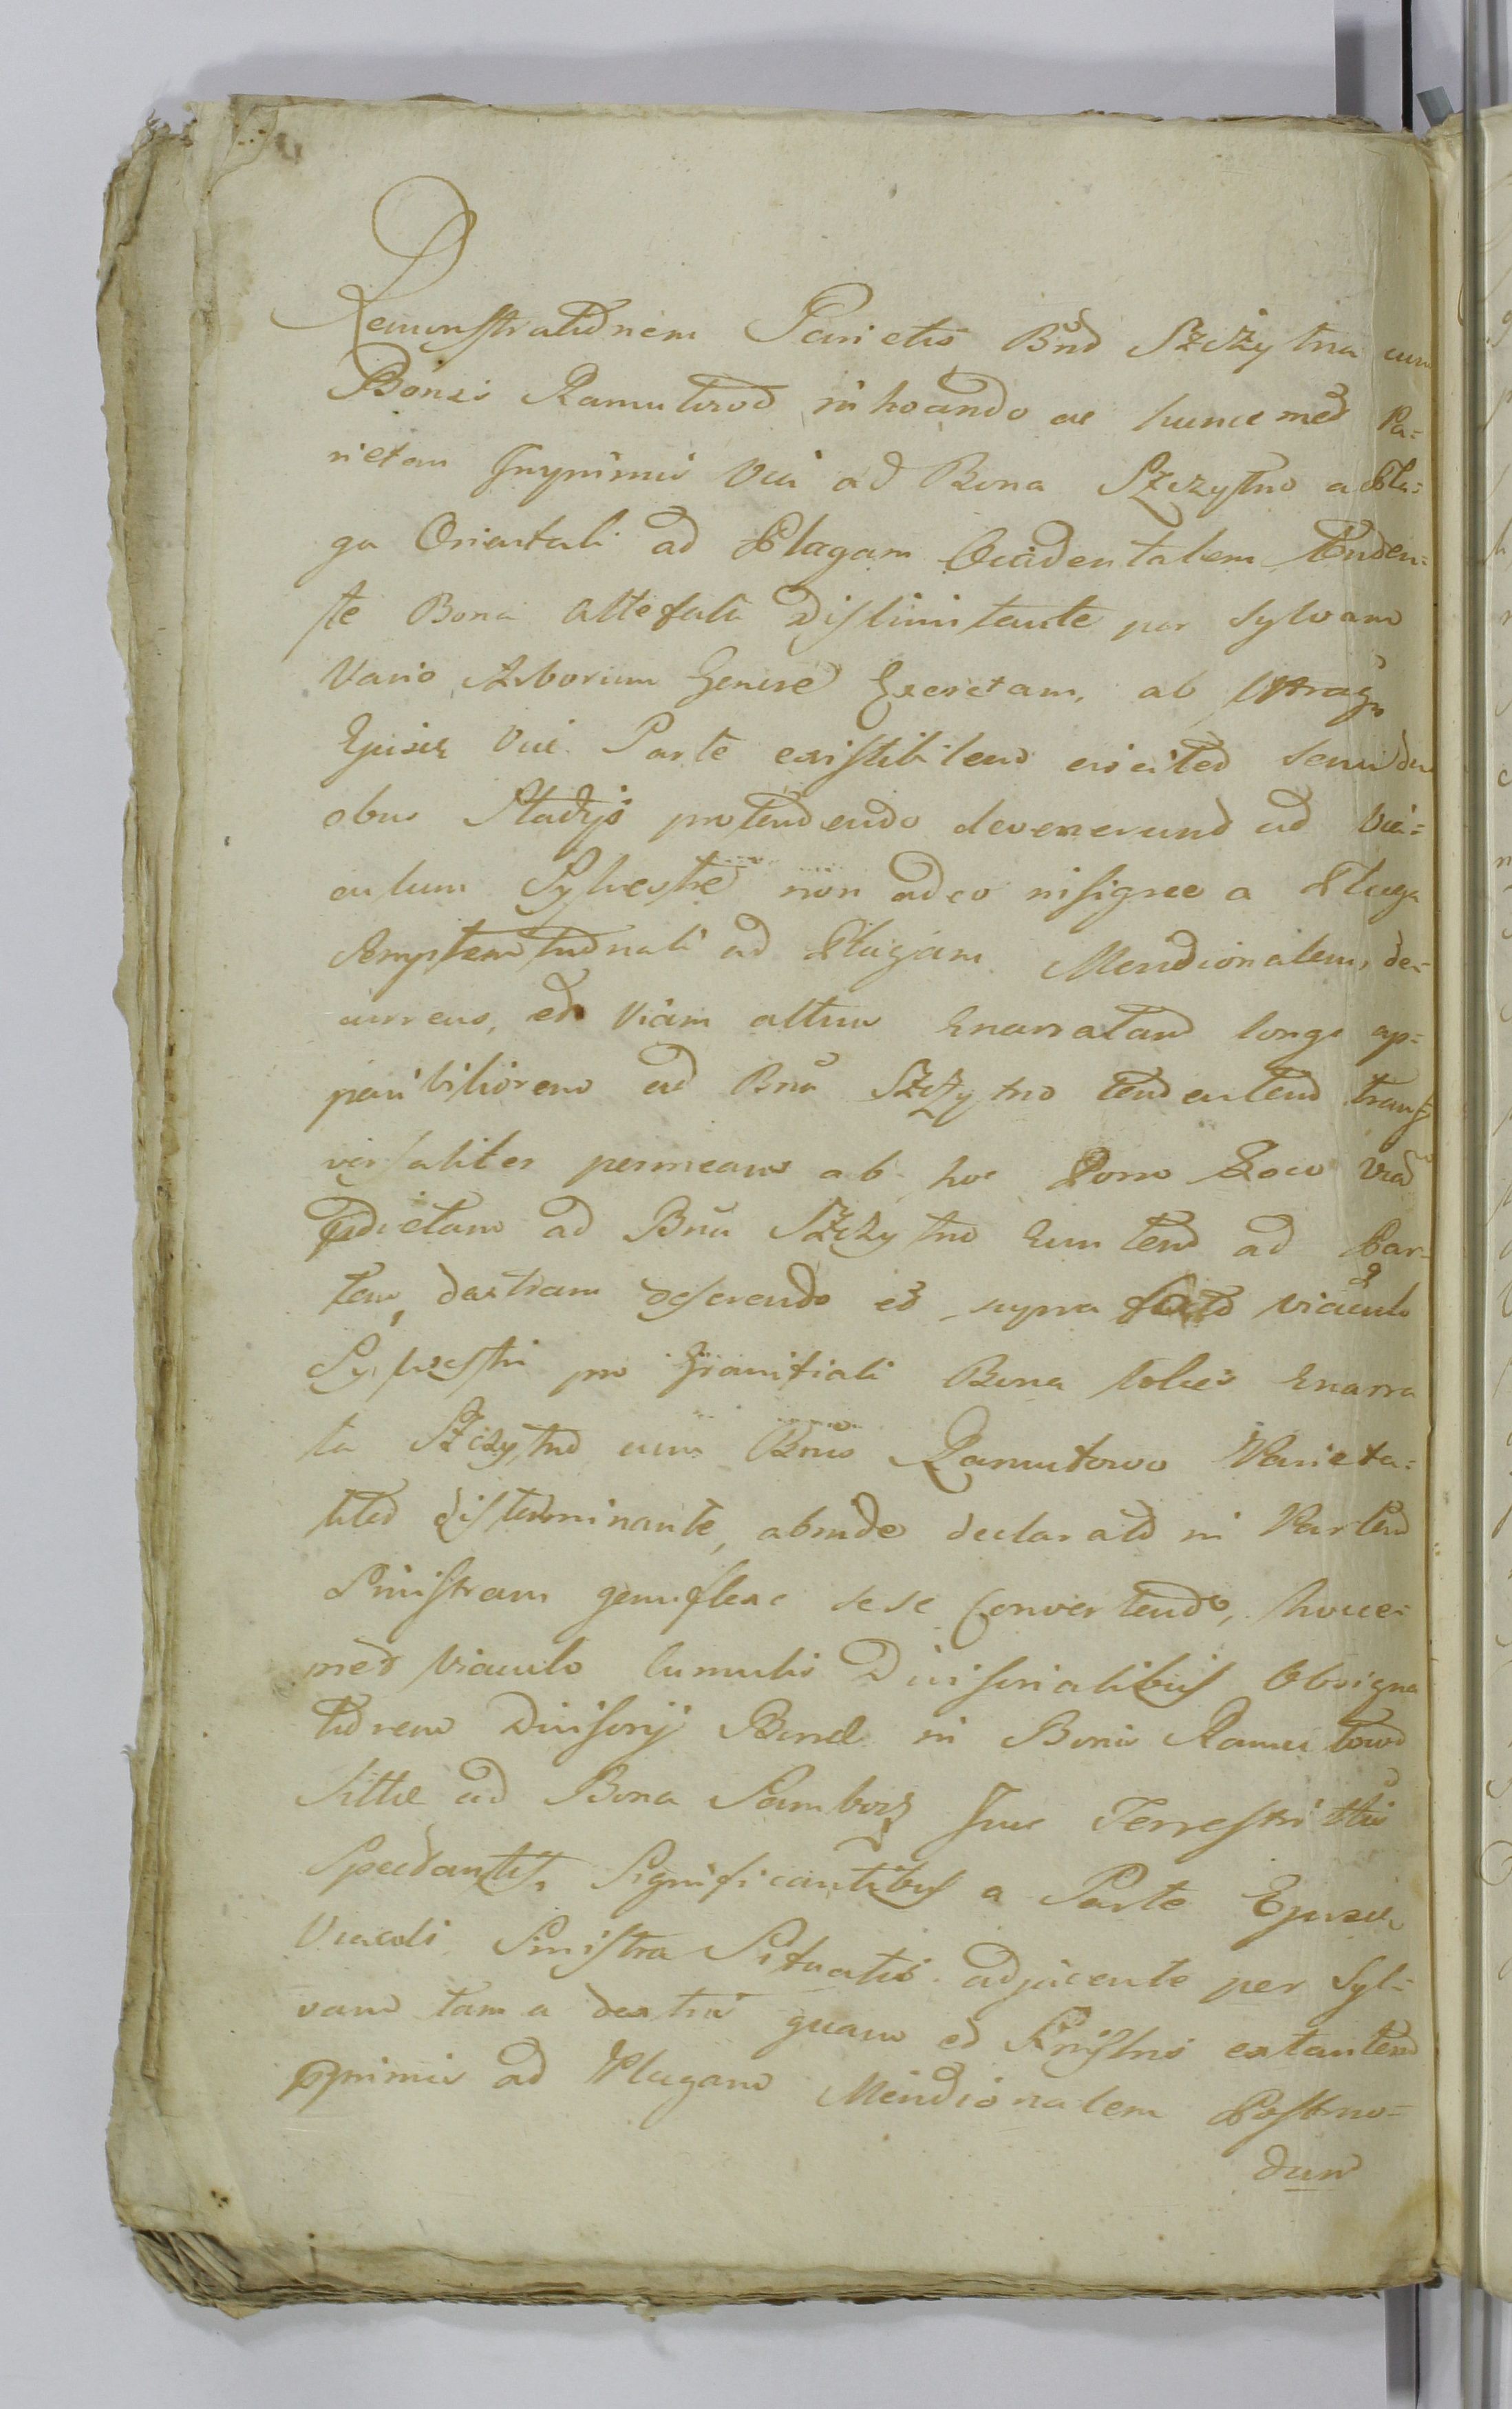 Remonstrationem Parietis Bnõ Szczytna cum
Bonis Ramutowo inhoando ac huncmet Pa=
rietem Inprimis Via ad Bona Szczytno a Pla=
ga Orientali ad Plagam Occidentalem Tenden=
te Bona Attefata Dislimitante per Sylvam
Vario Arborum Genere Excretam, ab Utraq
Ejusd Viæ Parte existibilem circiter semi du
obus Stadijs protendendo devenerunt ad Via=
culum Sylvestre non adeo insigne a Plaga
Semptemtrionali ad Plagam Meridionalem, de=
currens, et Viam altius Enarratam longe ap=
paribiliorem ad Bna Szczytno tendentem trans
versaliter permeans ab hoc Porro Loco Via
Pdictam ad Bna Szczytno Euntem ad Par=
tem dextram deserendo et supra facto viaculo
Sylvestri pro Granitiali Bona toties Enarra
ta Szczytno cum Bnis Ramutowo Parieta=
liter disterminante, abinde declarato in Partem
Sinistram genuflexe sese Convertendo, hocce=
met Viaculo Cumulis Divisorialibus Obsigna
tionem Divisorij Bonor in Bonis Ramutowo
Sittæ ad Bona Samborz Jure Terrestri
Spectantis, Significantibus a Parte Ejusd
Viaculi Sinistra Situatis adjacente per Syl=
vam tam a dextris quam et Sinistris extantem
Pprimis ad Plagam Meridionalem Postmo=
dum